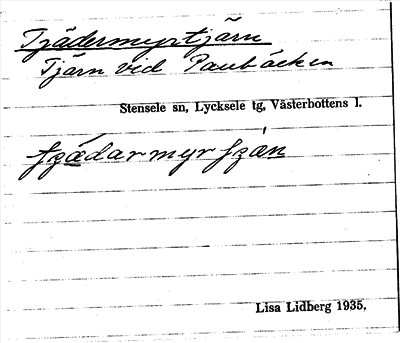 Tjädermyrtjärn
Tjärn vid Paubäcken
Stensele sn, Lycksele tg, Västerbottens l.
Lisa Lidberg 1935.